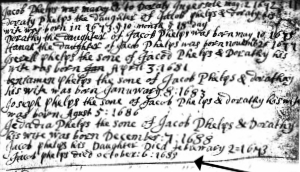 Jacob Phelps was maryed to Doraty Ingersole may 2 1672
Doraty Phelps the daughter of Jacob Phelps & Dorathy his
wife was born in 1673, 9
Dorathy the daughter of Jacob Phelps was born may 10 1675
Hanah the Daughter of Jacob Phelps was born november 2 1677
Phelps the sone of Jacob Phelps & Dorathy his
wife was born April 3, 1681
benjamen Phelps the sone of Jacob Phelps & dorathy
his wife was born January 8: 1683
Joseph Phelps the sone of Jacob Phelps & dorathy his wife
was born Agust 5: 1686
Jedadia Phelps the sone of Jacob Phelps & Dorathy
his wife was born December: 7: 1688
Jacob phelps his Daughter Died febeuary 2:
Jacob phelps died october: 6: 1689